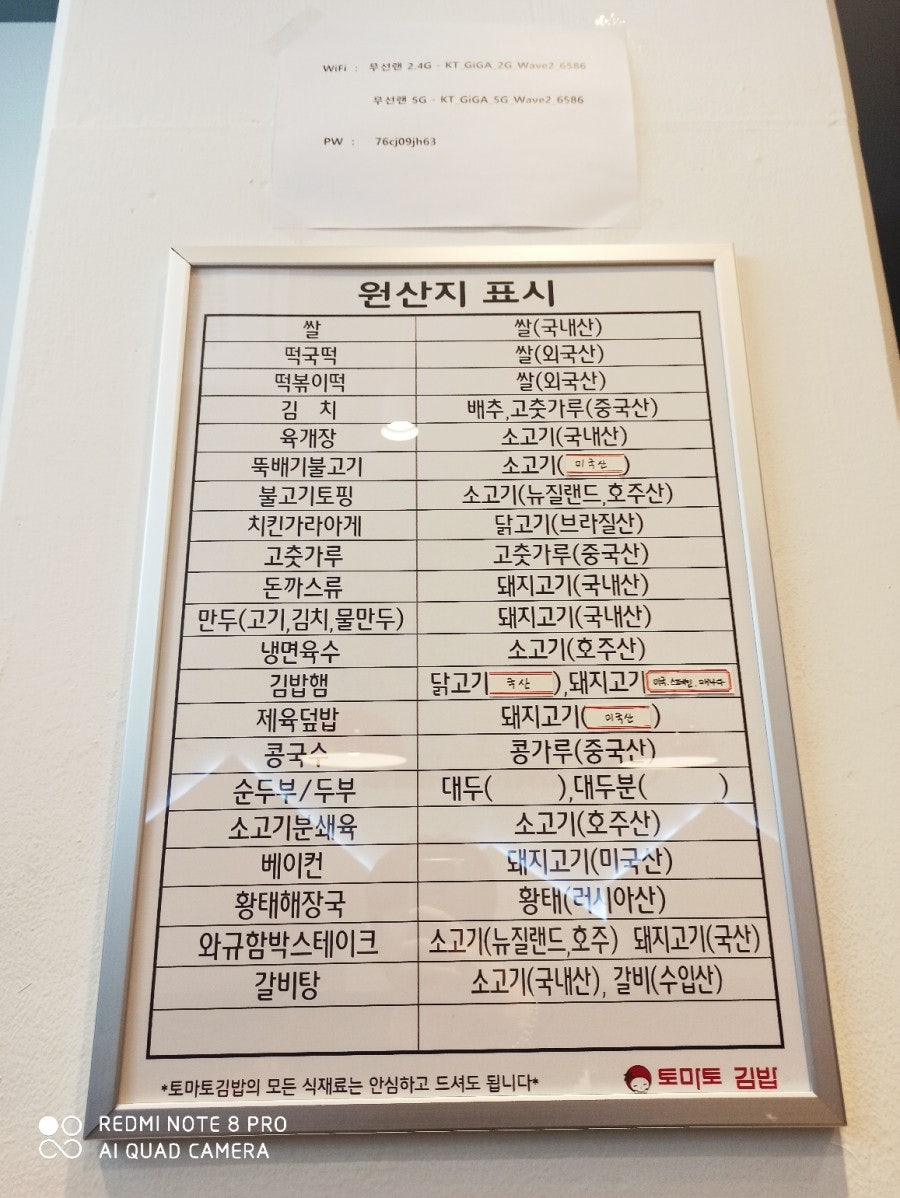 WiFi : 무선랜 2.4G - KT_GiGA_2G_Wave2_6586
무선랜 5G - KT_GiGA_5G_Wave2_6586
PW : 76cj09jh63
원산지 표시
쌀 쌀(국내산)
떡국떡 쌀(외국산)
떡볶이떡 쌀(외국산)
김 치 배추,고춧가루(중국산)
육개장 소고기(국내산)
뚝배기불고기 소고기(미국산)
불고기토핑 소고기(뉴질랜드,호주산)
치킨가라아게 닭고기(브라질산)
고춧가루 고춧가루(중국산)
돈까스류 돼지고기(국내산)
만두(고기,김치,물만두) 돼지고기(국내산)
냉면육수 소고기(호주산)
김밥햄 닭고기 국산),돼지고기 미국.스페인.캐나다
제육덮밥 돼지고기(미국산)
콩국수 콩가루(중국산)
순두부/두부 대두( ),대두분( )
소고기분쇄육 소고기(호주산)
베이컨 돼지고기(미국산)
황태해장국 황태(러시아산)
와규함박스테이크 소고기(뉴질랜드,호주) 돼지고기(국산)
갈비탕 소고기(국내산), 갈비(수입산)
*토마토김밥의 모든 식재료는 안심하고 드셔도 됩니다*
토마토 김밥
REDMI NOTE 8 PRO
AI QUAD CAMERA